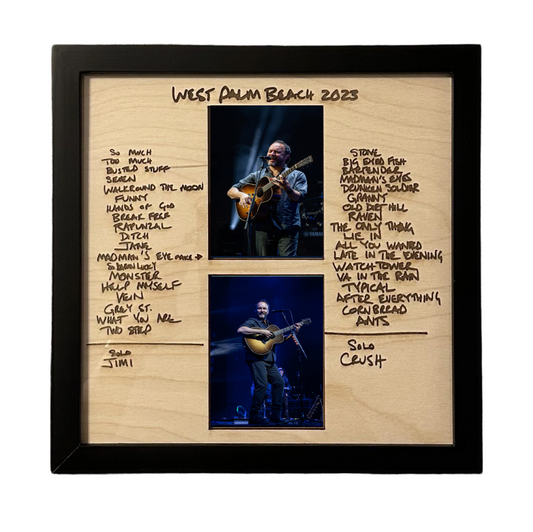 WEST PALM BEACH 2023
SO MUCH
TOO MUCH
BUSTED STUFF
SEVEN
WALKAROUND THE MOON
FUNNY
HANDS OF GOD
BREAK FREE
RAPUNZAL
DITCH
JANE
MADMAN'S EYE
SO DAMN LUCKY
MONSTER
HELP MYSELF
VEIN
GREY ST.
WHAT YOU ARE
TWO STEP
SOLO
JIMI
STONE
BIG EYED FISH
BARTENDER
MADMAN'S EYES
DRUNKEN SOLDIER
GRANNY
OLD DIRT HILL
RAVEN
THE ONLY THING
LIE IN
ALL YOU WANTED
LATE IN THE EVENING
WATCHTOWER
VA IN THE RAIN
TYPICAL
AFTER EVERYTHING
CORNBREAD
ANTS
SOLO
CRUSH